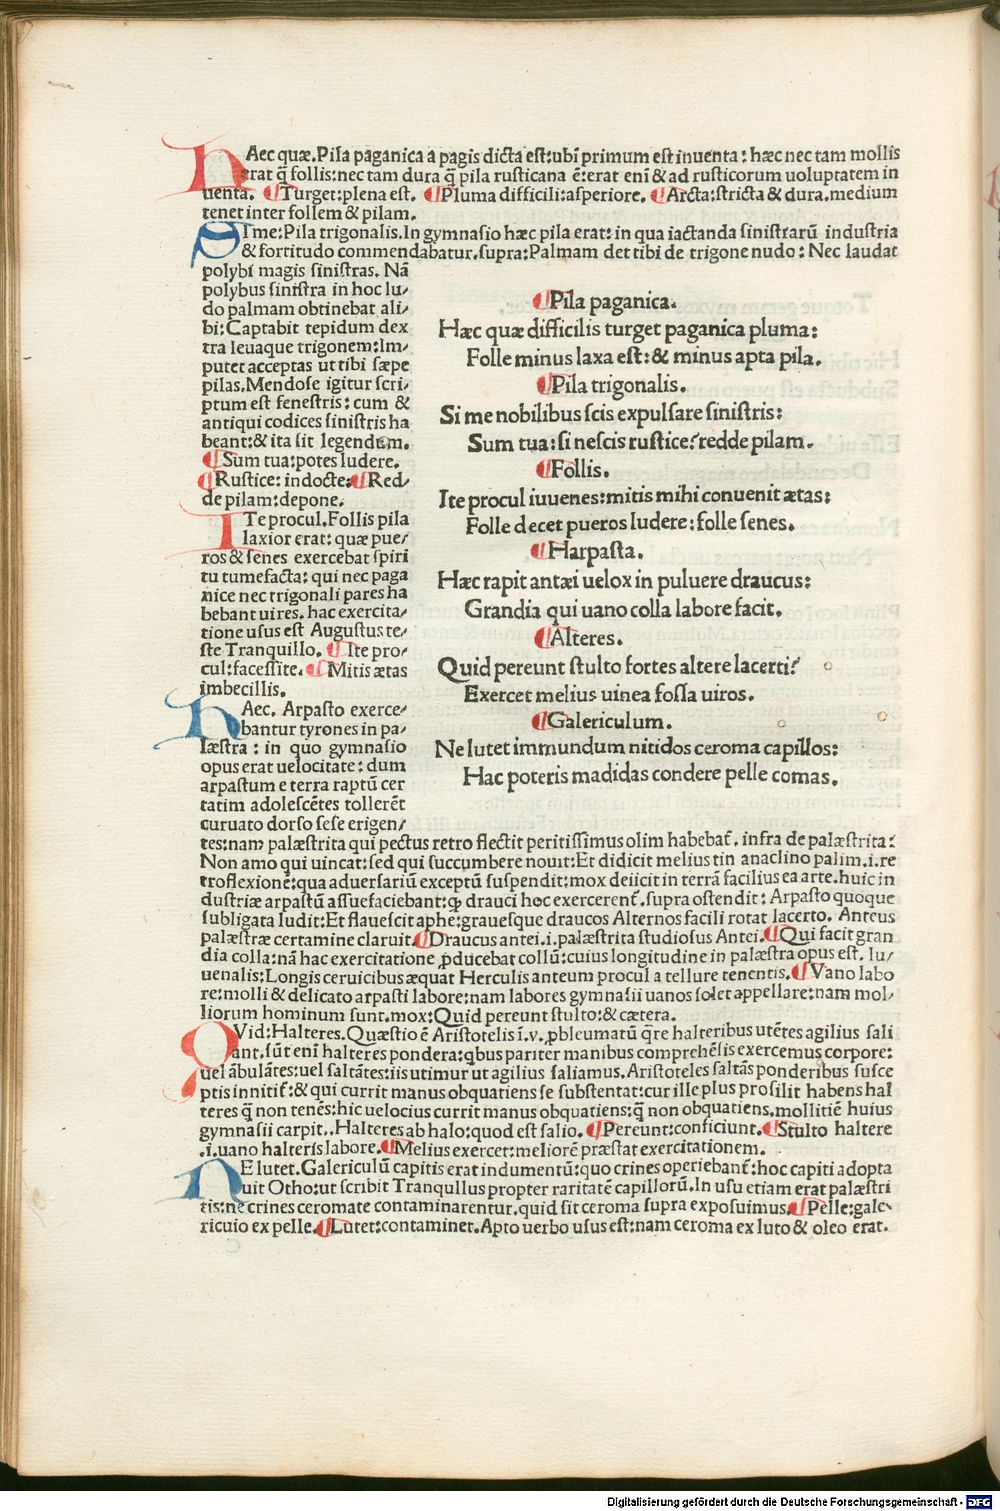 HAec quæ. Pila paganica a pagis dicta est: ubi primum est inuenta: hæc nec tam mollis
erat q̄ follis: nec tam dura q̄ pila rusticana ē: erat eni & ad rusticorum uoluptatem in
uenta. ¶Turget: plena est. ¶Pluma difficili: asperiore. ¶Arcta: stricta & dura. medium
tenet inter follem & pilam.
SIme: Pila trigonalis. In gymnasio hæc pila erat: in qua iactanda sinistrarū industria
& fortitudo commendabatur. supra: Palmam det tibi de trigone nudo: Nec laudat
polybi magis sinistras. Nā
polybus sinistra in hoc lu/
do palmam obtinebat ali/
bi: Captabit tepidum dex
tra leuaque trigonem: Im/
putet acceptas ut tibi sæpe
pilas. Mendose igitur scri/
ptum est fenestris: cum &
antiqui codices sinistris ha
beant: & ita sit legendum.
¶Sum tua: potes ludere.
¶Rustice: indocte: ¶Red/
de pilam: depone.
ITe procul. Follis pila
laxior erat: quæ pue/
ros & senes exercebat spiri
tu tumefacta: qui nec paga
nice nec trigonali pares ha
bebant uires. hac exercita/
tione usus est Augustus te/
ste Tranquillo. ¶Ite pro/
cul: facessite. ¶Mitis ætas
imbecillis.
HAec. Arpasto exerce/
bantur tyrones in pa/
læstra: in quo gymnasio
opus erat uelocitate: dum
arpastum e terra raptū cer
tatim adolescētes tollerēt
curuato dorso sese erigen/
¶Pila paganica.
Hæc quæ difficilis turget paganica pluma:
Folle minus laxa est: & minus apta pila.
¶Pila trigonalis.
Si me nobilibus scis expulsare sinistris:
Sum tua: si nescis rustice? redde pilam.
¶Follis.
Ite procul iuuenes: mitis mihi conuenit ætas:
Folle decet pueros ludere: folle senes.
¶Harpasta.
Hæc rapit antæi uelox in puluere draucus:
Grandia qui uano colla labore facit.
¶Alteres.
Quid pereunt stulto fortes altere lacerti?
Exercet melius uinea fossa uiros.
¶Galericulum.
Ne lutet immundum nitidos ceroma capillos:
Hac poteris madidas condere pelle comas.
tes: nam palæstrita qui pectus retro flectit peritissimus olim habebat̄. infra de palæstrita:
Non amo qui uincat: sed qui succumbere nouit: Et didicit melius tin anaclino palim. i. re
troflexionē: qua aduersariū exceptū suspendit: mox deiicit in terrā facilius ea arte. huic in
dustriæ arpastū assuefaciebant: ꝙ drauci hoc exercerent̄. supra ostendit: Arpasto quoque
subligata ludit: Et flauescit aphe: grauesque draucos Alternos facili rotat lacerto. Anteus
palæstræ certamine claruit. ¶Draucus antei. i. palæstrita studiosus Antei. ¶Qui facit gran
dia colla: nā hac exercitatione ꝓducebat collū: cuius longitudine in palæstra opus est. Iu/
uenalis: Longis ceruicibus æquat Herculis anteum procul a tellure tenentis. ¶Vano labo
re: molli & delicato arpasti labore: nam labores gymnasii uanos solet appellare: nam mol/
liorum hominum sunt. mox: Quid pereunt stulto: & cætera.
QVid: Halteres. Quæstio ē Aristotelis i. v. ꝓbleumatū q̄re halteribus utētes agilius sali
ant. sūt eni halteres pondera: qbus pariter manibus comprehēsis exercemus corpore:
uel ābulātes: uel saltātes: iis utimur ut agilius saliamus. Aristoteles saltās ponderibus susce
ptis innitit̄: & qui currit manus obquatiens se substentat: cur ille plus prosilit habens hal
teres q̄ non tenēs: hic uelocius currit manus obquatiens: q̄ non obquatiens. mollitiē huius
gymnasii carpit.. Halteres ab halo: quod est salio. ¶Pereunt: conficiunt. ¶Stulto haltere
.i. uano halteris labore. ¶Melius exercet: meliorē præstat exercitationem.
NE lutet. Galericulū capitis erat indumentū: quo crines operiebant̄: hoc capiti adopta
uit Otho: ut scribit Tranqullus propter raritatē capillorū. In usu etiam erat palæstri
tis: ne crines ceromate contaminarentur. quid sit ceroma supra exposuimus. ¶Pelle: gale/
riculo ex pelle. ¶Lutet: contaminet. Apto uerbo usus est: nam ceroma ex luto & oleo erat.
Digitalisierung gefördert durch die Deutsche Forschungsgemeinschaft - DFG